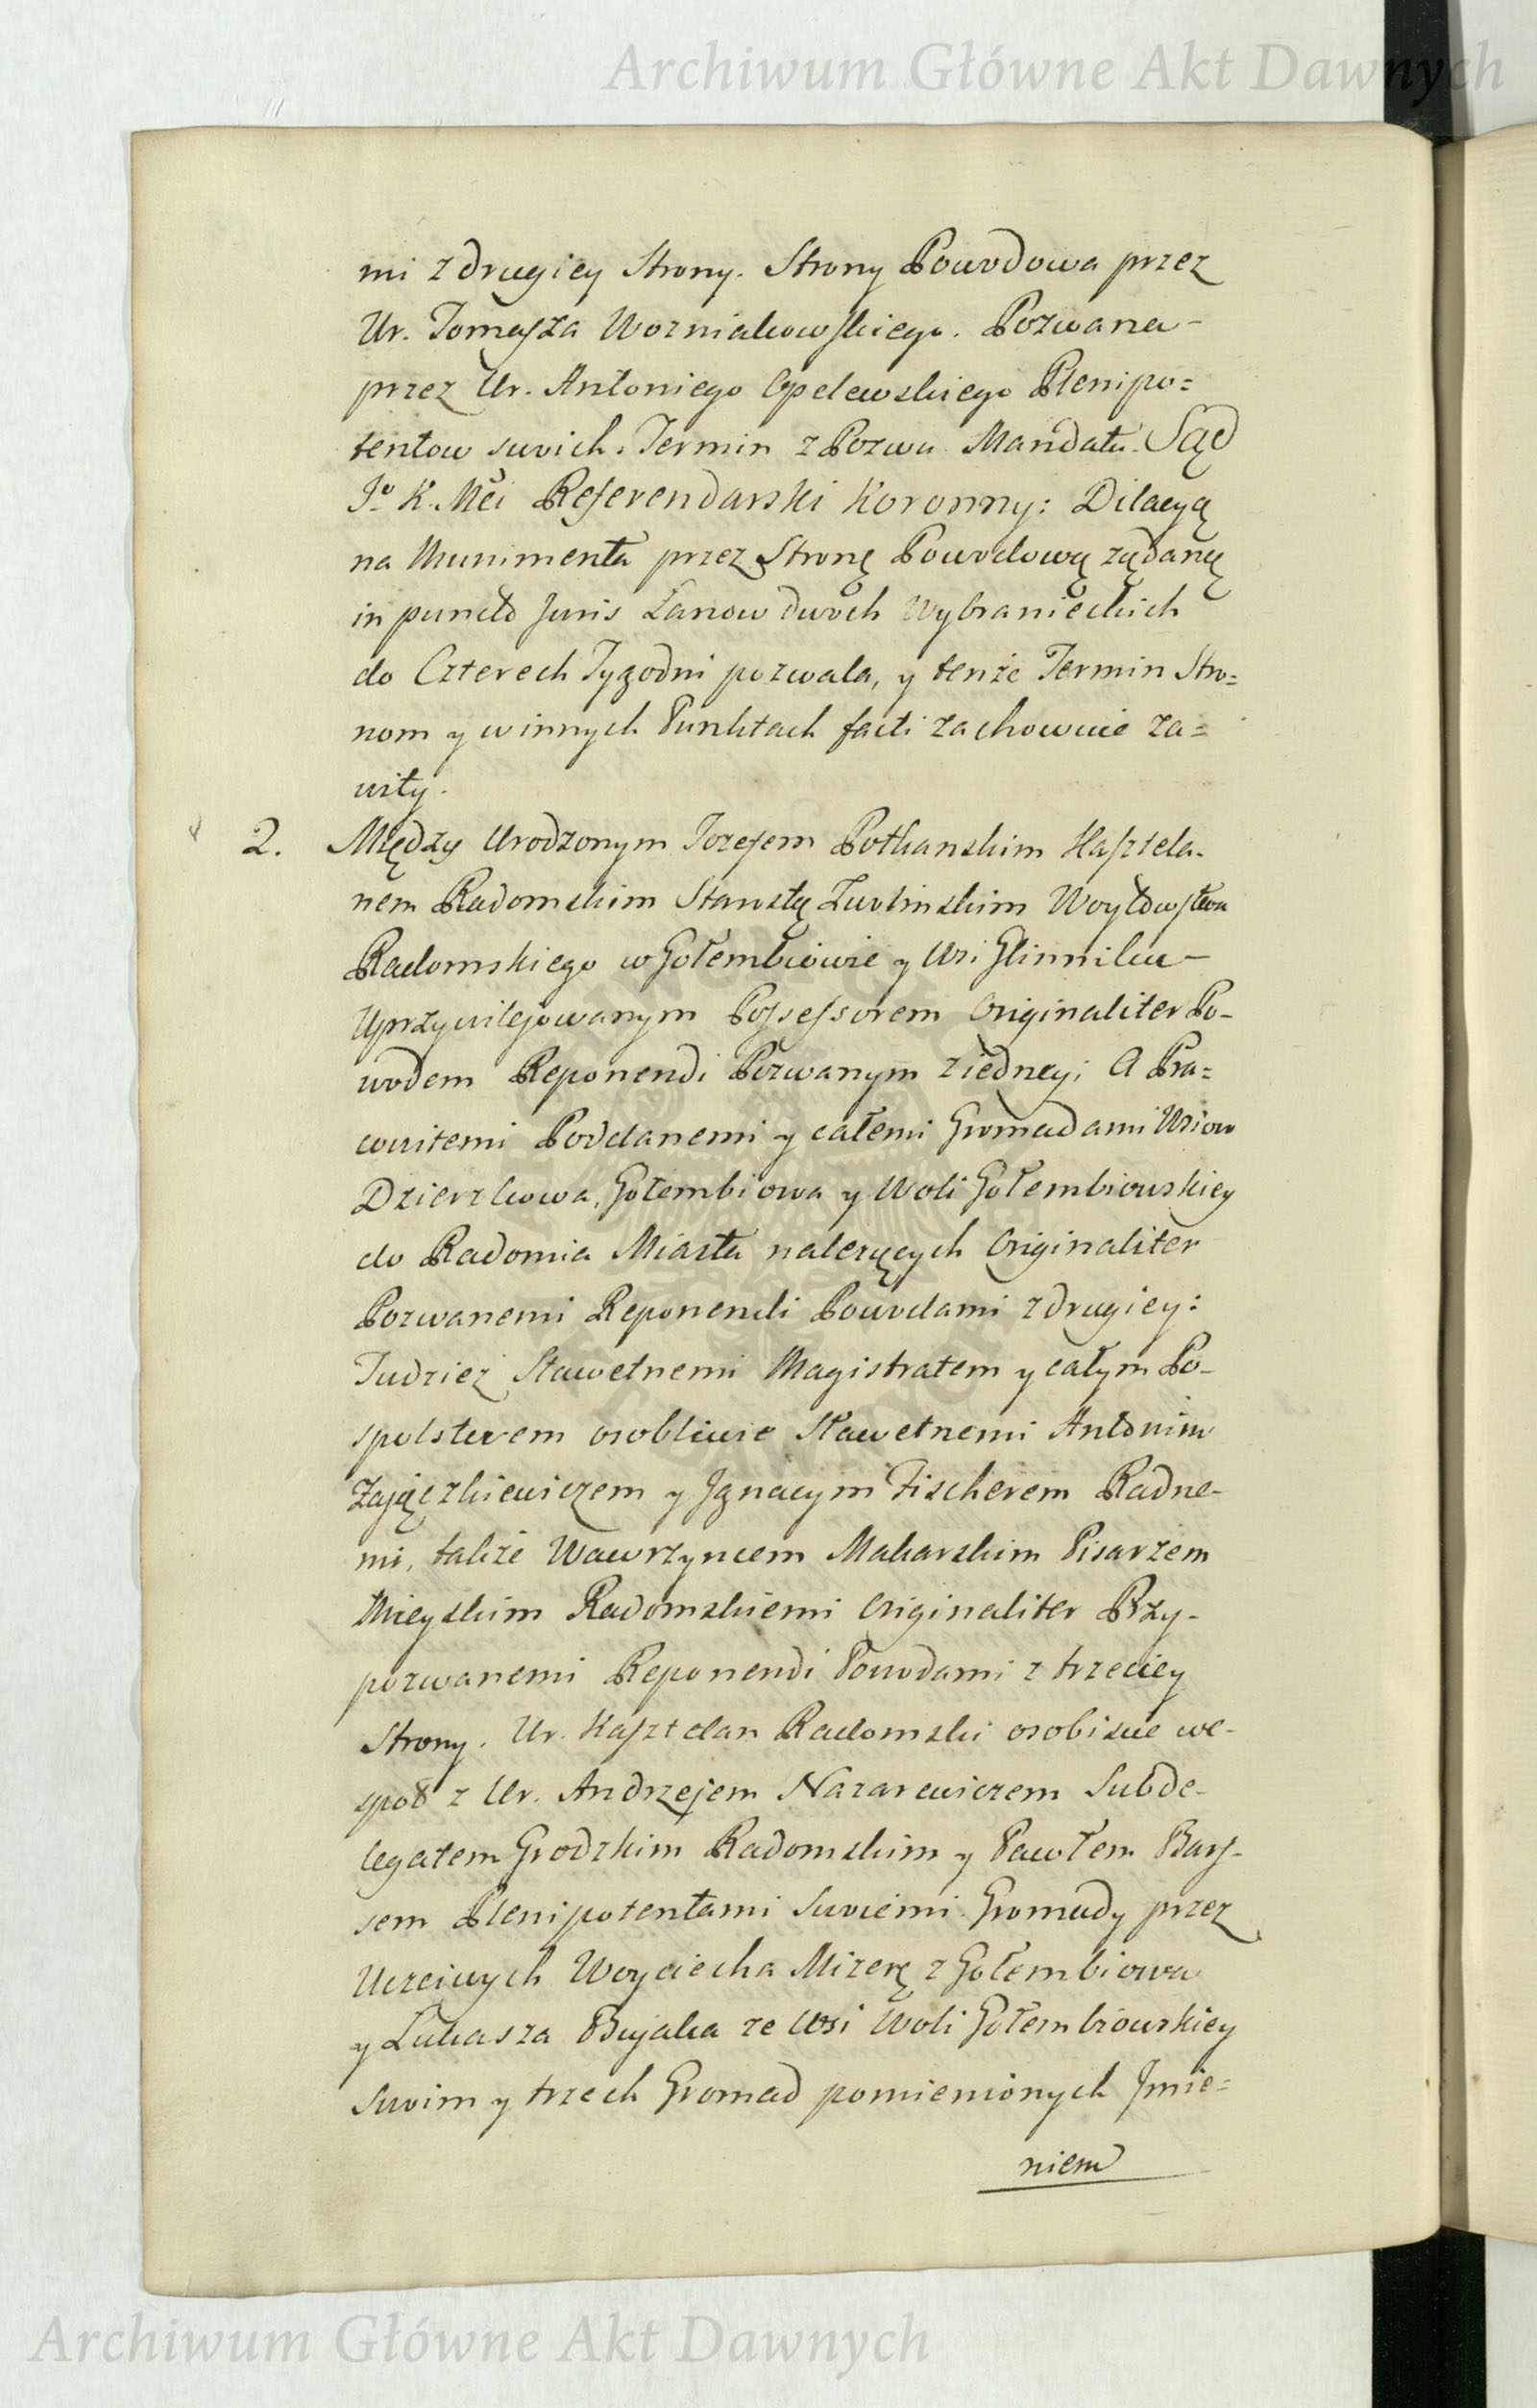 Archiwum Główne Akt Dawnych
mi z drugiey Strony. Strony Powodowa przez
Ur. Tomasza Wozniakowskiego. Pozwana-
przez Ur. Antoniego Opelewskiego Plenipo=
tentow swoich. Termin z Pozwu Mandatu. Sąd
Jo K. Mci Referendarski Koronny: Dilacyą
na Munimenta przez Stronę Powodową rządaną
in puncto Juris Łanow dwoch Wybranieckich
do Czterech Tygodni pozwala, y tenże Termin Stro=
nom y w innych Punktach facti zachowuie za=
wity.
2. Między Urodzonym Jozefem Potkanskim Kasztela-
nem Radomskim Starostą Zwolinskim Woytowstwa
Radomskiego w Gołembiowie y Wsi Glinniku-
Uprzywilejowanym Possessorem Originaliter Po-
wodem Reponendi Pozwanym z iedney; A Pra=
cowitemi Poddanemi y całemi Gromadami Wsiow
Dzierzkowa, Gołembiowa y Woli Gołembiowskiey
do Radomia Miasta nalezących Originaliter
Pozwanemi Reponendi Powodami z drugiey:
Tudziez Sławetnemi Magistratem y całym Po-
spolstwem osobliwie Sławetnemi Antonim
Zajączkiewiczem y Ignacym Fischerem Radne-
mi, także Wawrzyncem Makarskim Pisarzem
Mieyskim Radomskiemi Originaliter Przy-
pozwanemi Reponendi Powodami z trzeciey
Strony. Ur. Kasztelan Radomski osobiscie we-
społ z Ur. Andrzejem Nazarewiczem Subde-
legatem Grodzkim Radomskim y Pawłem Bars-
sem Plenipotentami swoiemi. Gromady przez
Uczciwych Woyciecha Mizerę z Gołembiowa
y Łukasza Bujaka ze Wsi Woli Gołembiowskiey
Swoim y trzech Gromad pomienionych Jmie=
niem
Archiwum Główne Akt Dawnych